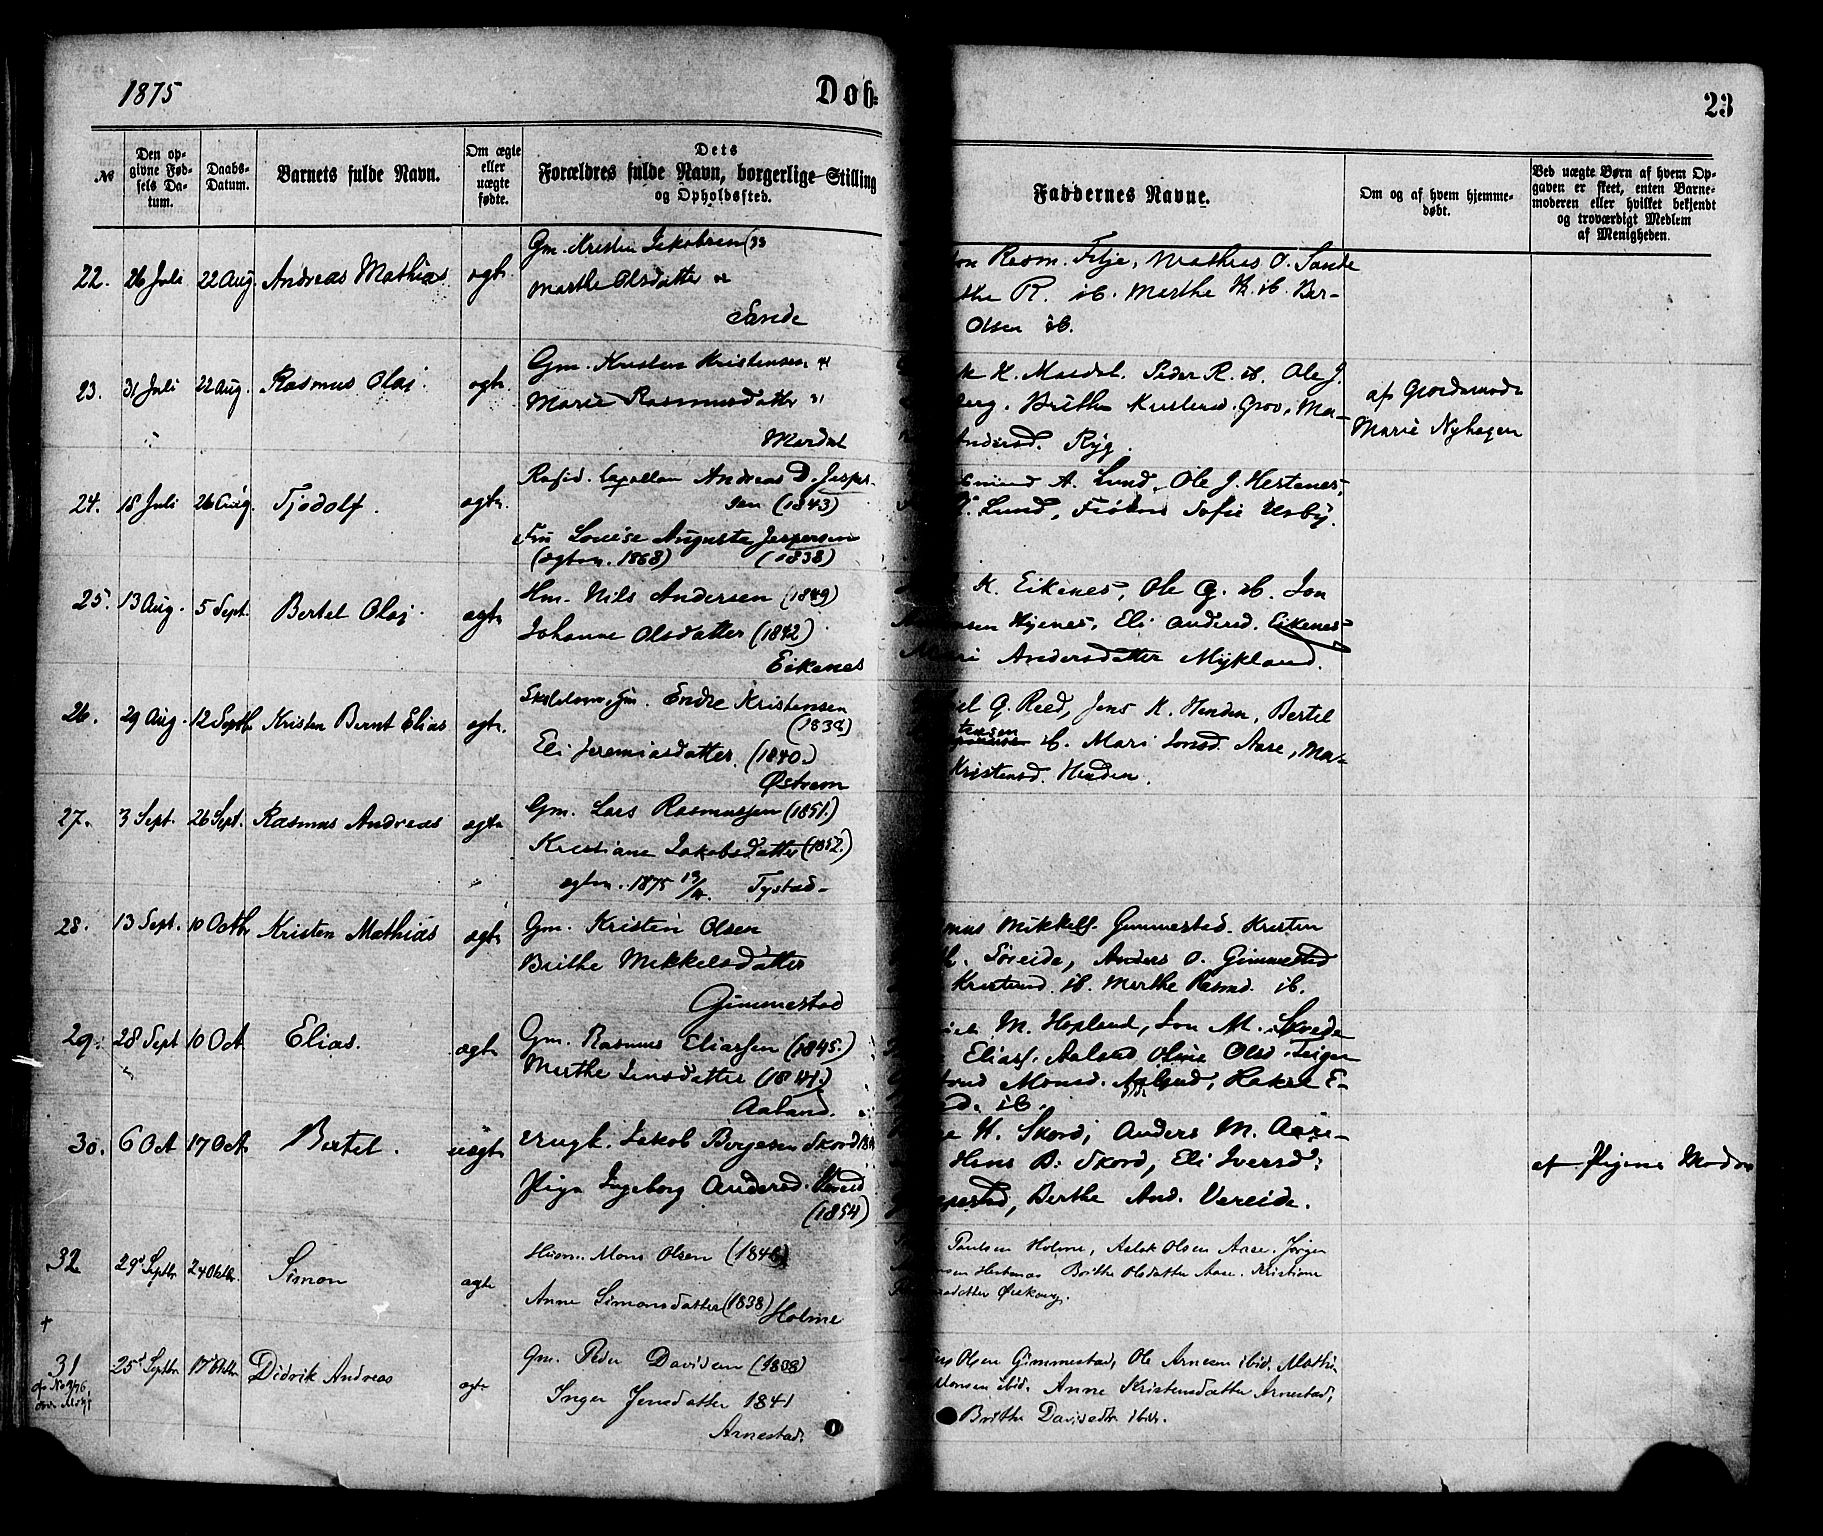 1875
Døb-
23
№
Den op-
givne Fød-
sels Da-
tum.
Daabs-
Datum.
Barnets fulde Navn.
Om ægte
eller
uægte
fødte.
Dets
Forældres fulde Navn, borgerlige Stilling
og Opholdssted.
Faddernes Navne.
Om og af hvem hjemme-
døbt.
Ved uægte Børn af hvem Op-
gaven er skeet, enten Barne-
moderen eller hvilket bekjendt
og troværdigt Medlem
af Menigheden.
22. 26 Juli 22 Aug. Andreas Mathias ægte
Gm. Kristen Jakobsen (33
Marthe Olsdatter
Sande
Rasm. Fitje, Mathias O. Sande
the R. ib. Marthe K. ib. Ber-
Olsen ib.
23. 31 Juli 22 Aug. Rasmus Olai. ægte.
Gm. Kristen Kristensen 41
Marie Rasmusdatter 31
Mardal
K. Mardal. Peder R. ib. Ole J.
berg. Brithe Kristensd. Grov, Ma-
Andersd. Ryg.
af Gjordemoder
Marie Nyhagen
24. 18 Juli 26 Aug. Tjodolf. ægte.
Resid. Capellan Andreas D. Jesper-
sen (1843)
Fru Louise Auguste Jespersen
(ægtev. 1868) (1838)
A. Lund, Ole J. Hestenes,
Lund, Frøken Sofie
25. 13 Aug. 5 Sept. Bertel Olai. ægte
Hm. Nils Andersen (1849)
Johanne Olsdatter (1842)
Eikenes
K. Eikenes, Ole G. ib. Jon
sen Hjenes, Eli Andersd. Eikenes
Mari Andersdatter Mykland.
26. 29 Aug. 12 Septb. Kristen Bernt Elias ægte.
Skolelærer, Gm. Endre Kristensen
(1838)
Eli Jeremiasdatter. (1840.)
Østrem
el G. Reed, Jens K. Henden, Bertel
tensen
ib. Mari Jonsd. Aase, Ma-
Kristensd. Henden.
27. 3 Sept. 26 Sept. Rasmus Andreas ægte
Gm. Lars Rasmussen (1851.)
Kristiane Jakobsdatter (1852.)
ægtev. 1875 Tystad
28. 13 Sept. 10 Octb. Kristen Mathias ægte
Gm. Kristen Olsen
Brithe Mikkelsdatter
Gimmestad
mus Mikkels. Gimmestad. Kristen
Søreide, Anders O. Gimmestad
Kristensd. ib. Marthe Rasmd. ib.
29. 28 Sept 10 Oct Elias. ægte
Gm. Rasmus Eliassen (1845.)
Marthe Jensdatter (1841.)
Aaland.
M. Hopland, Jon M.
Eliass. Aaland Oline Olsd. Teigen
Monsd. Aaland, Hakre E-
d. ib.
30. 6 Oct 17 Oct. Bertel. uægte
Ungk. Jakob Børgesen Skord
Pige Ingeborg Andersd. Vereid
(1854)
H. Skord, Anders M. Aase-
Hans B. Skord, Eli Iversd.
estad, Berthe And. Vereide.
af Pigens Moder
32 29 Septbr. 24 Oktbr. Simon ægte
Husm. Mons Olsen (1846)
Anne Simonsdatter (1838) Holme
Paulsen Holme, Aslak Olsen Aase. Jørgen
sen Hestenes Brithe Olsdatter Aase. Kristiane
datter
†
31 25 Septbr. 17 Oktbr. Didrik Andreas ægte
Gm. Peder Davidsen (1838)
Inger Jensdatter 1841
Arnestad.
Olsen Gimmestad, Ole Arnesen ibid. Mathi-
Monsen ibid. Anne Kristensdatter Arnestad,
Brithe Davidsdtr ibid.